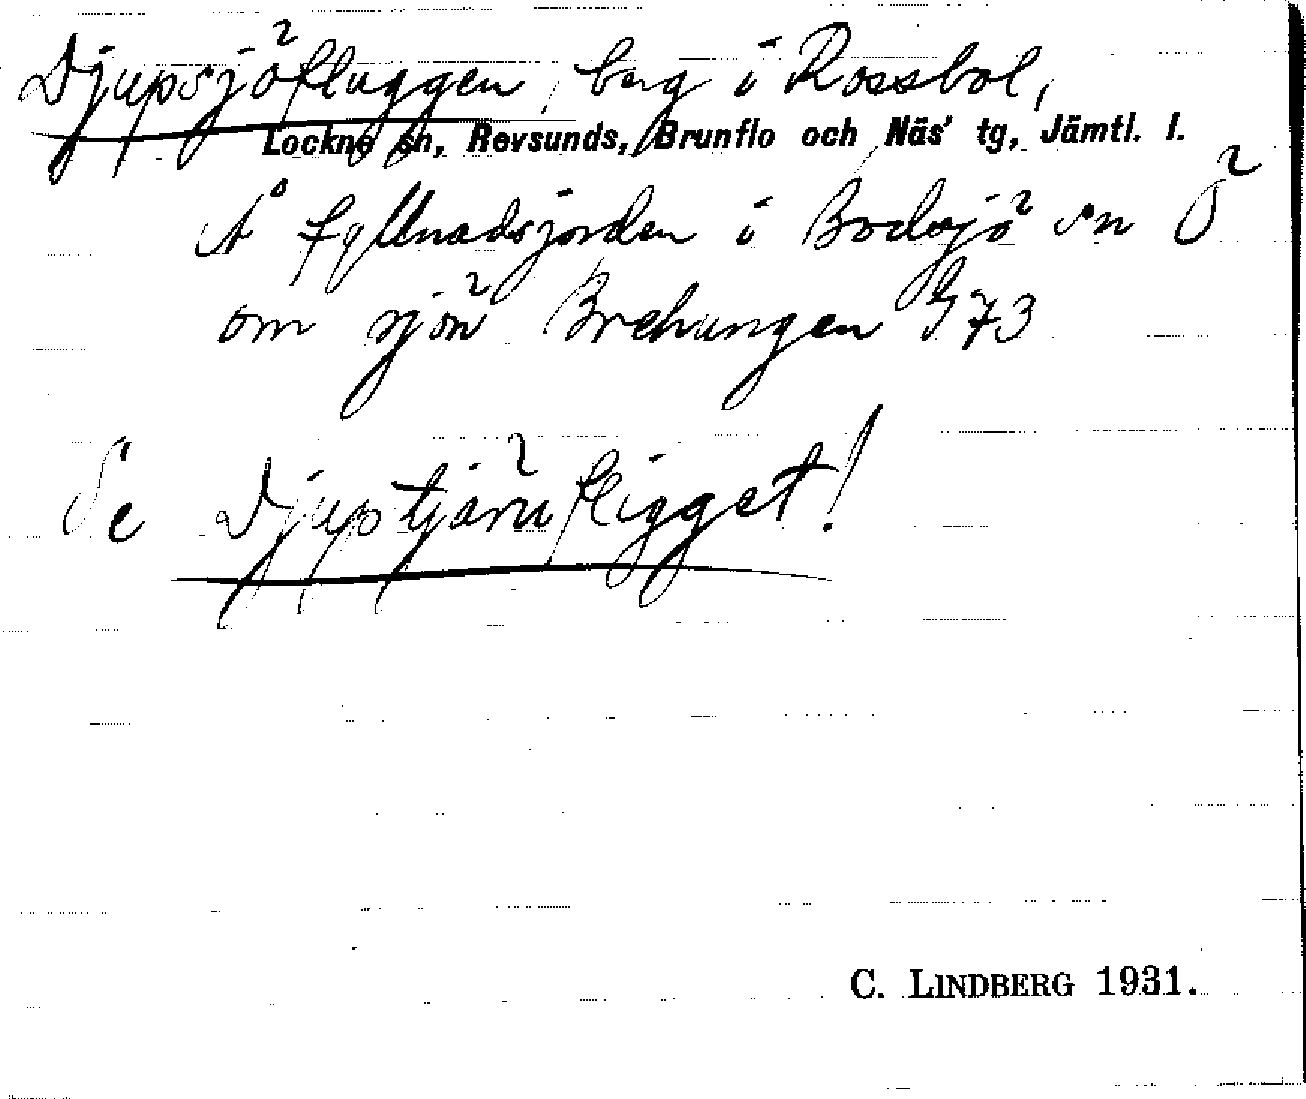 Djupsjöfluggen, berg i Rossbol,
Lockne sn, Revsunds, Brunflo och Näs' tg, Jämtl. l.
Å fyllnadsjorden i Bodsjö sn Ö
om sjön Brehungen G73
Se Djuptjärnfligget!
C. LINDBERG 1931.